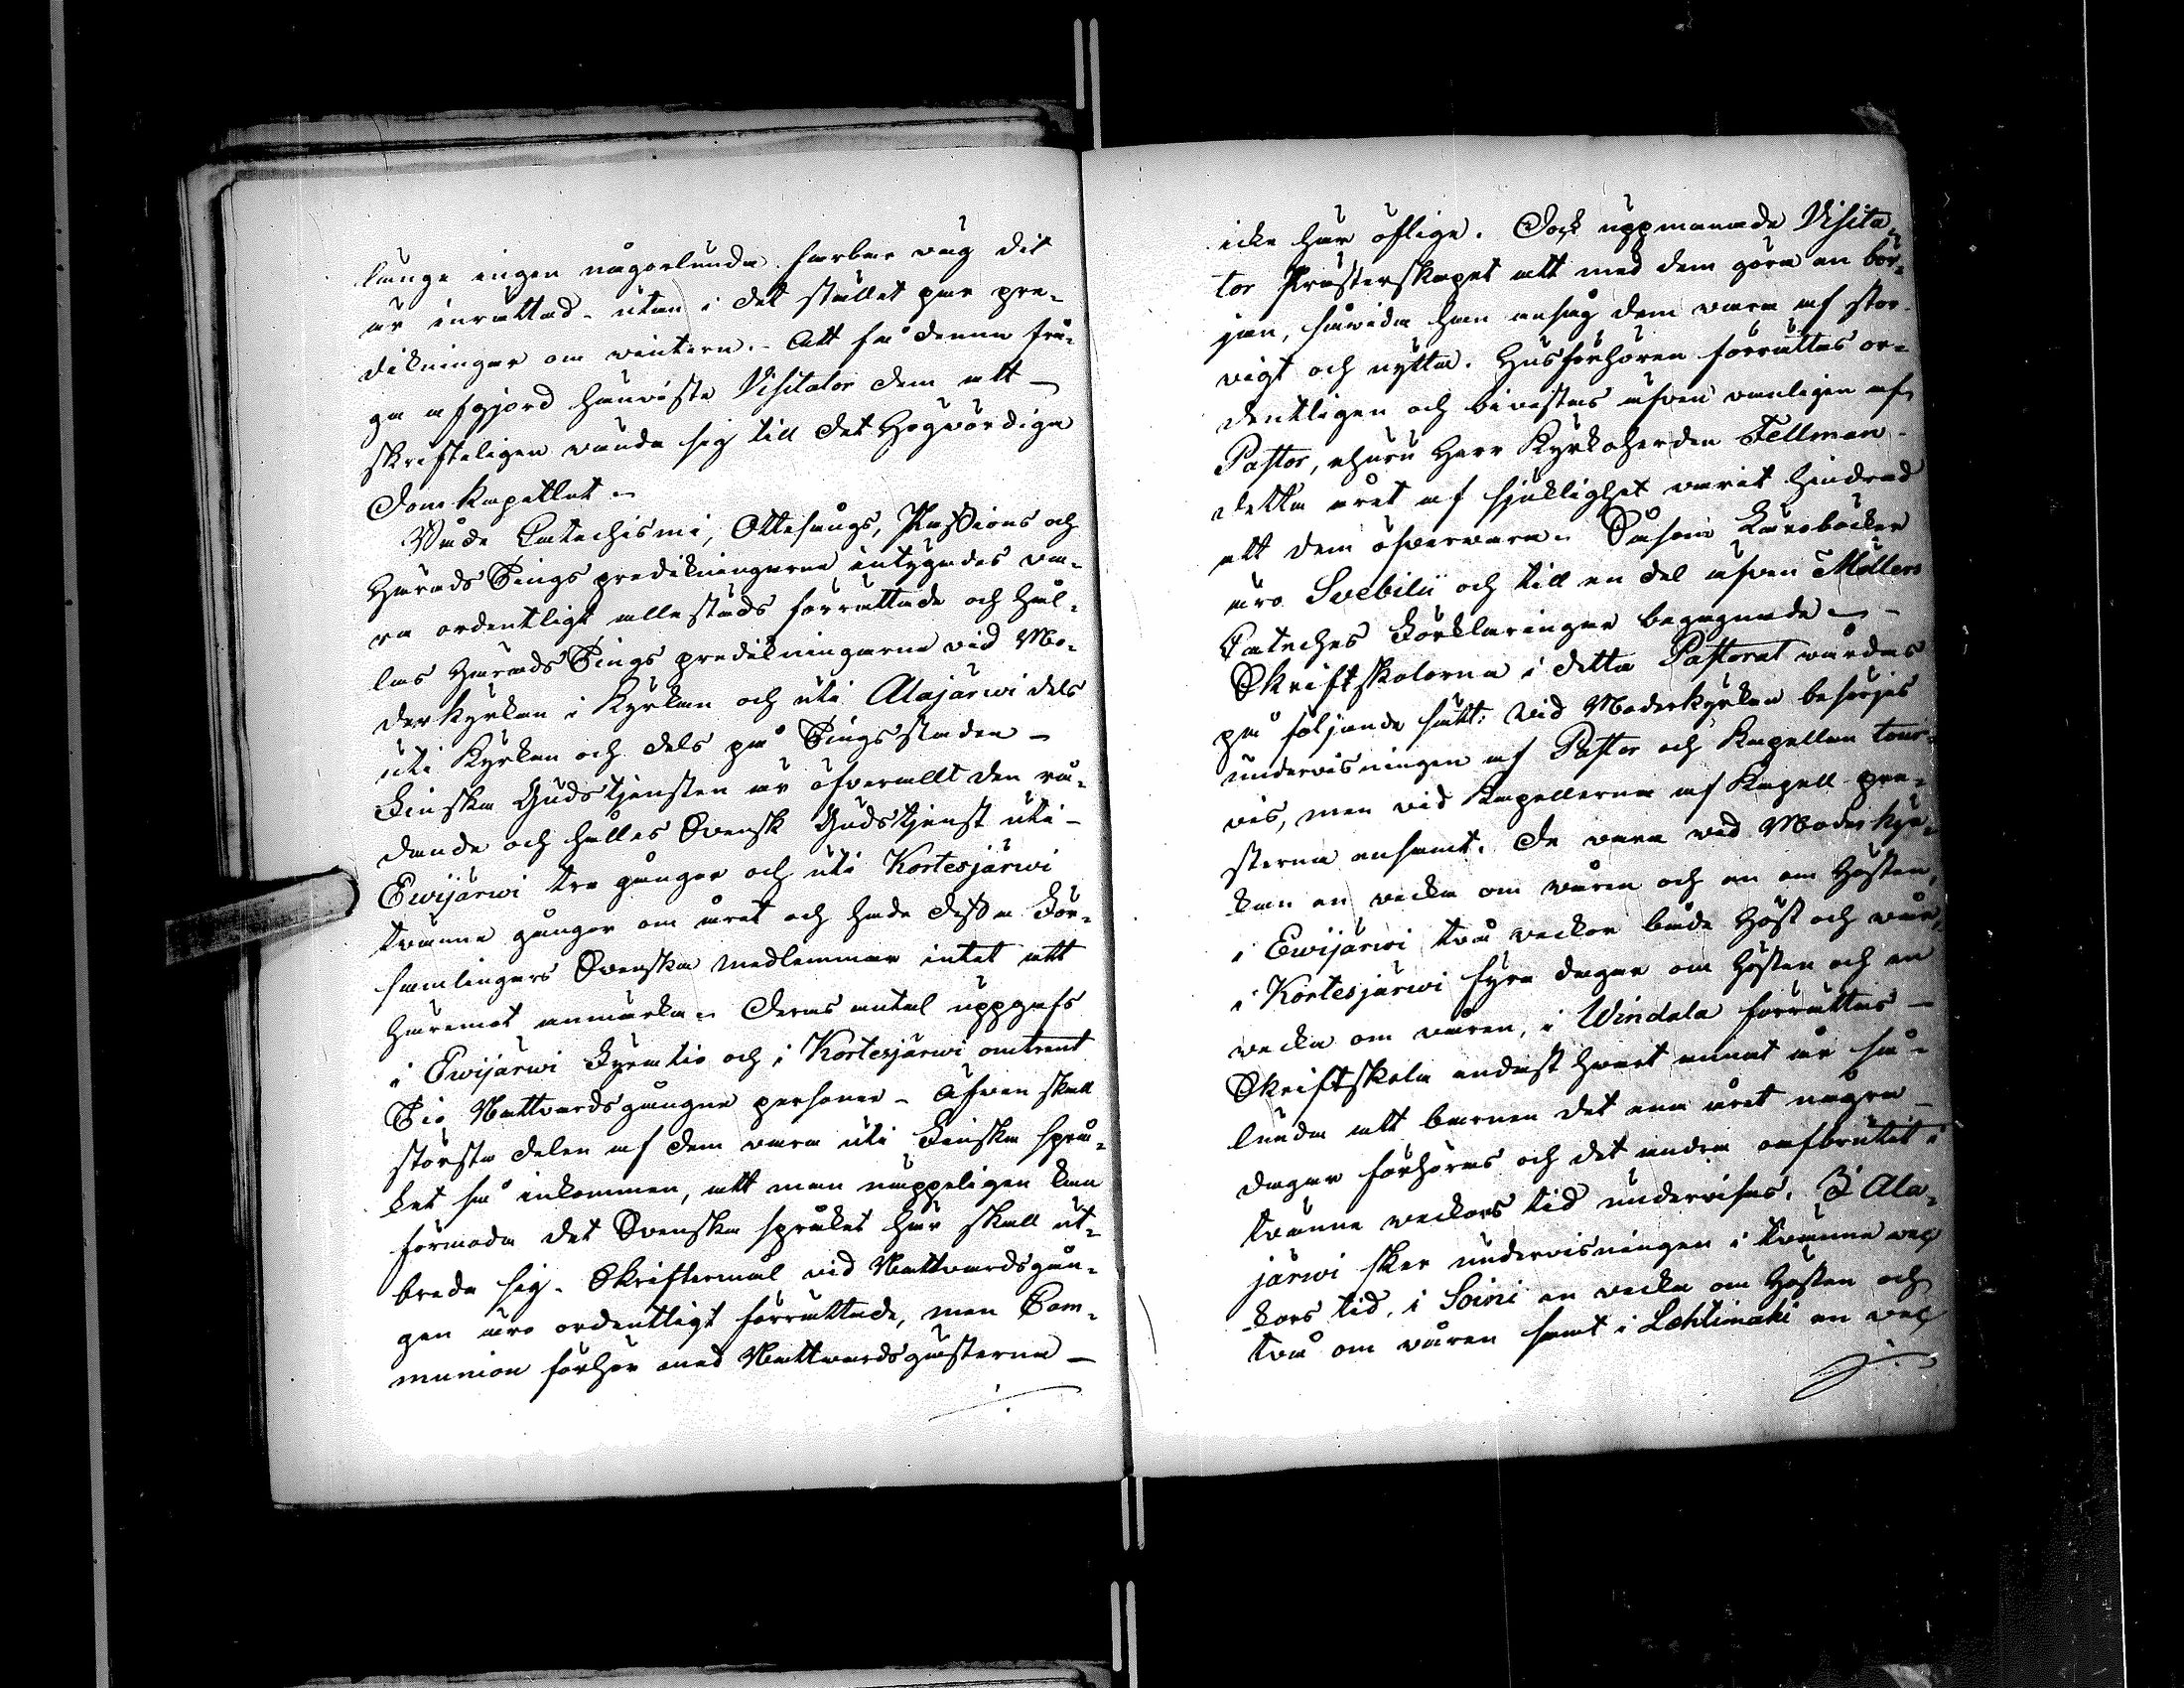 länge ingen någorlunda farbar väg dit
är inrättad – utan i det stället par pre-
dikningar om vintern. – Att få denna frå-
ga afgjord hänviste Visitator dem att –
skrifteligen vända sig till det Högvördiga
Domkapitlet. –
Både Catechismi, Ottesångs, Passions och
Härads Tings predikningarna intygades va-
ra ordentligt allestäds förrättade och hål-
las Härads Tings predikningarna vid Mo-
derkyrkan i Kyrkan och uti Alajärwi dels
uti Kyrkan och dels på Tingsstaden –
Finska Gudstjensten är öfverallt den rå-
dande och hålles Svensk Gudstjenst uti –
Ewijärwi tre gånger och uti Kortesjärwi
tvänne gånger om året och hade dessa För-
samlingars Svenska medlemmar intet att
häremot anmärka. – Deras antal uppgafs
i Ewijärwi Fyratio och i Kortesjärwi omtrent
Tio Nattvardsgångne personer – Äfven skall
största delen af dem vara uti Finska språ-
ket så inkommen, att man näppeligen kan
förmoda det Svenska språket här skall ut-
breda sig. Skriftermål vid Nattvardsgån-
gen äro ordentligt förrättade, men Com-
munion förhör med Nattvardsgästerna –
./.
icke här öflige. Dock uppmanade Visita-
tor Prästerskapet att med dem göra en bör-
jan, såvida han ansåg dem vara af stor
vigt och nytta. Husförhören förrättas or-
dentligen och bivistas äfven vanligen af
Pastor, ehuru Herr Kyrkoherden Fellman
detta året af sjuklighet varit hindrad
att dem öfvervara. Såsom Läroböcker
äro Svebilii och till en del äfven Möllers
Cateches Förklaringar begagnade. –
Skriftskolorna i detta Pastorat vårdas
på följande sätt: Vid Moderkyrkan besörjes
undervisningen af Pastor och Kapellan tour-
vis, men vid Kapellerna af Kapell-pre-
sterna ensamt. De vara vid Moderkyr-
kan en vecka om våren och en om Hösten,
i Ewijärwi två veckor både Höst och vår,
i Kortesjärwi fyra dagar om Hösten och en
vecka om våren, i Windala förrättas –
Skriftskola endast hvart annat år så-
lunda att barnen det ena året några –
dagar förhöras och det andra oafbrutit i
tvänne veckors tid undervisas. I Ala-
järwi sker undervisningen i tvänne vec-
kors tid, i Soini en vecka om Hösten och
två om våren samt i Lehtimäki en vec-
./.